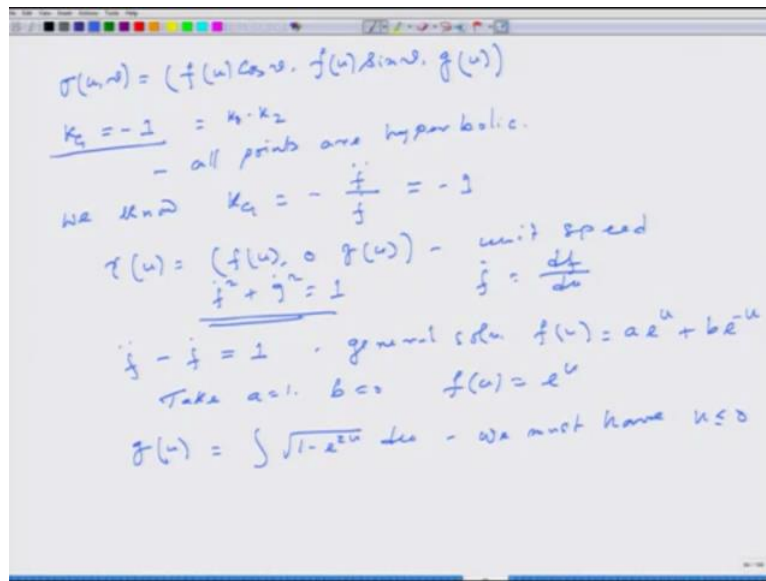 σ(u,v) = (f(u) Cos v, f(u) Sin v, g(u))
K_G = -1 = k₁ · k₂
- all points are hyperbolic.
We know K_G = - f̈/f = -1
γ(u) = (f(u), 0 g(u)) - unit speed
ḟ² + ġ² = 1 ḟ = df/du
f̈ - f = 1 · general soln. f(u) = a eᵘ + b e⁻ᵘ
Take a=1. b=0 f(u) = eᵘ
g(u) = ∫ √(1 - e²ᵘ) du - we must have u ≤ 0